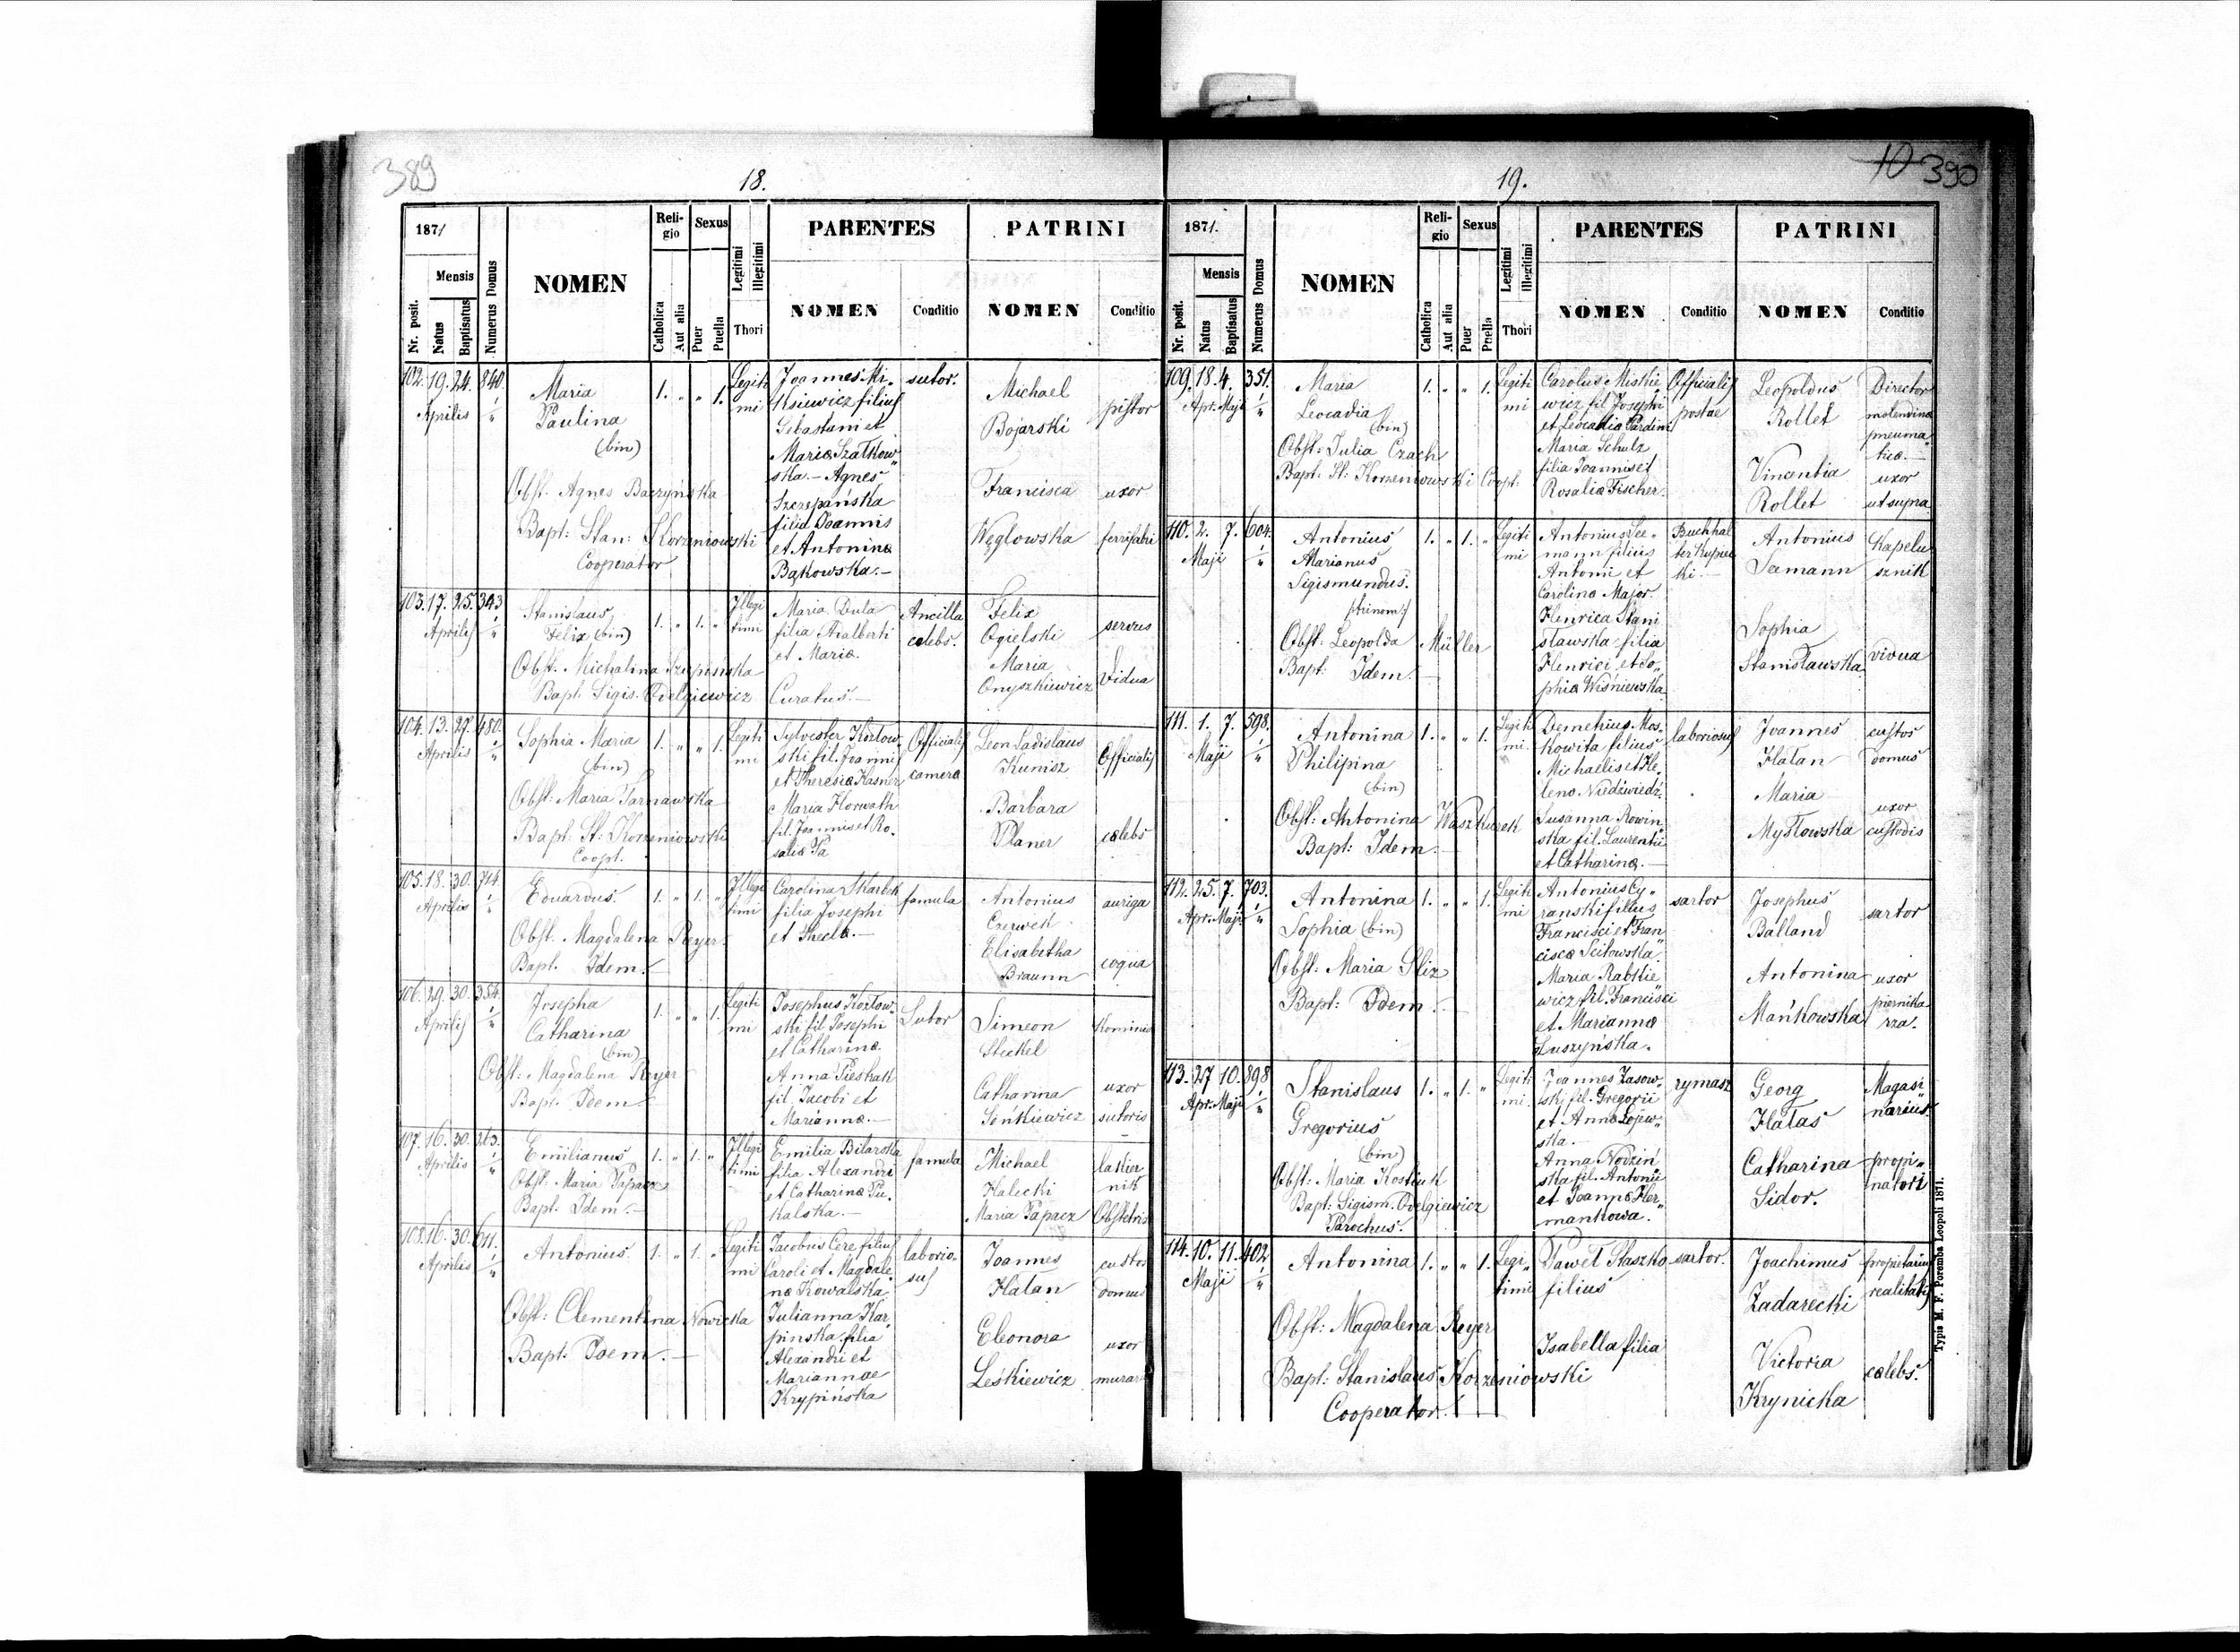 389
18.
1871
Nr. posit.
Mensis
Natus
Baptisatus
Numerus Domus
NOMEN
Reli-
gio
Catholica
Aut alia
Sexus
Puer
Puella
Legitimi
Illegitimi
Thori
PARENTES
NOMEN
Conditio
PATRINI
NOMEN
Conditio
102. 19. 24. 840.
Aprilis
Maria
Paulina
(bin)
Obst. Agnes Baczyńska
Bapt: Stan: Korzeniowski
Cooperator
1. " " 1.
Legiti
mi
Joannes Mi-
ksiewicz filius
Sebastiani et
Mariæ Szatkow
ska.- Agnes
Szczepańska
filia Joannis
et Antoninæ
Bąkowska.-
sutor.
Michael
Bojarski
pistor
Francisca
Węglowska
uxor
ferrifabri
103. 17. 25. 343
Aprilis
Stanislaus
Felix (bin)
Obst. Michalina
Bapt. Sigis. Odelgiewicz Curatus.-
1. " 1. "
Illegi
timi
Maria Dula
filia Adalberti
et Mariæ.
Ancilla
cælebs.
Felix
Ogielski
servus
Maria
Onyszkiewicz
Vidua
104. 13. 27. 480.
Aprilis
Sophia Maria
(bin)
Obst: Maria Tarnawska
Bapt: St: Korzeniowski
Coopt.
1. " " 1.
Legiti
mi
Sylvester Kozlow
ski fil. Joannis
et Theresiæ Kasner
Maria Horwath
fil. Joannis et Ro-
saliæ
Officialis
cameræ
Leon Ladislaus
Kunisz
Officialis
Barbara
Planer
cælebs
105. 18. 30. 714.
Aprilis
Eduardus.
Obst. Magdalena Reyer
Bapt. Idem.-
1. " 1. "
Illegi
timi
Carolina Skarbek
filia Josephi
et Theclæ.-
famula
Antonius
Czerwek
auriga
Elisabetha
Braunn
coqua
106. 29. 30. 354.
Aprilis
Josepha
Catharina
(bin)
Obst: Magdalena Reyer
Bapt. Idem.-
1. " " 1.
Legiti
mi
Josephus Kozłow-
ski fil Josephi
et Catharinæ.
Anna Pieskak
fil. Jacobi et
Mariannæ.-
Sutor
Simeon
Steckel
Catharina
Seńkiewicz
uxor
sutoris
107. 16. 30. 263.
Aprilis
Emilianus
Obst: Maria Papacz
Bapt. Idem.-
1. " 1. "
Illegi
timi
Emilia Bilarska
filia Alexandri
et Catharinæ Pie-
kalska.-
famula
Michael
Halecki
lakier
nik
Maria Papacz
Obstetrix
108. 16. 30. 611.
Aprilis
Antonius.
Obst: Clementina Nowicka
Bapt: Idem.-
1. " 1. "
Legiti
mi
Jacobus Cere filius
Caroli et Magdale
næ Kowalska
Julianna Kar
pinska filia
Alexandri et
Mariannae
Krypińska
laborio-
sus
Joannes
Hatan
custos
domus
Eleonora
Leśkiewicz
uxor
murar
10 390
19.
1871.
Nr. posit.
Mensis
Natus
Baptisatus
Numerus Domus
NOMEN
Reli-
gio
Catholica
Aut alia
Sexus
Puer
Puella
Legitimi
Illegitimi
Thori
PARENTES
NOMEN
Conditio
PATRINI
NOMEN
Conditio
109. 18. 4. 351.
Apr. Maji
Maria
Leocadia
(bin)
Obst: Julia Czach
Bapt: St: Korzeniowski Coopt:
1. " " 1.
Legiti
mi
Carolus Miskie
wicz fil Josephi
et Leocadiæ Pardini
Maria Schulz
filia Joannis et
Rosaliæ Fischer.
Officialis
postae
Leopoldus
Rollet
Director
molendinæ
pneuma
ticæ.-
Vincentia
Rollet
uxor
ut supra
110. 2. 7. 604.
Maji
Antonius
Marianus
Sigismundus.
Obst: Leopolda Müller
Bapt. Idem.-
1. " 1. "
Legiti
mi
Antonius See-
mann filius
Antoni et
Carolinæ Major.
Henrica Stani
sławska filia
Henrici et So-
phiæ Wiśniewska
Buchhal
ter Kupiec
ki.-
Antonius
Seemann
Kapelu
sznik
Sophia
Stanisławska
vidua
111. 1. 7. 598.
Maji
Antonina
Philipina
(bin)
Obst: Antonina Waszkurek
Bapt: Idem.-
1. " " 1.
Legiti
mi.
Demetrius Mos-
kowita filius
Michaelis et He-
lenæ Niedźwiedź.
Susanna Rowin
ska fil. Laurentii
et Catharinæ.-
laboriosus
Joannes
Hatan
custos
domus
Maria
Mysłowska
uxor
custodis
112. 25. 7. 703.
Apr. Maji
Antonina
Sophia (bin)
Obst: Maria Sliz
Bapt: Idem.-
1. " " 1.
Legiti
mi
Antonius Cy-
ranski filius
Francisci et Fran
ciscæ Scitowska.
Maria Rabskie
wicz fil. Francisci
et Mariannæ
Luszyńska.
sartor
Josephus
Balland
sartor
Antonina
Mańkowska
uxor
piernika
rza.
113. 27 10. 898
Apr. Maji
Stanislaus
Gregorius
(bin)
Obst: Maria Kostiuk
Bapt: Sigism. Odelgiewicz
Parochus.
1. " 1. "
Legiti
mi.
Joannes Zasow-
ski fil. Gregorii
et Annæ Łojew-
ska.-
Anna Nodziń
ska fil. Antonii
et Joannæ Her-
mankowa.
rymasz
Georg
Hałas
Magasi
narius
Catharina
Sidor.
propi-
natori
114. 10. 11. 402
Maji
Antonina
Obst: Magdalena Reyer
Bapt: Stanislaus Korzeniowski
Cooperator.
1. " " 1.
Legi-
timi
Paweł Staszko
filius
Isabella filia
sartor.
Joachimus
Zadarecki
proprietarius
realitatis
Victoria
Krynicka
cælebs.
Typis M. F. Poremba Leopoli 1871.